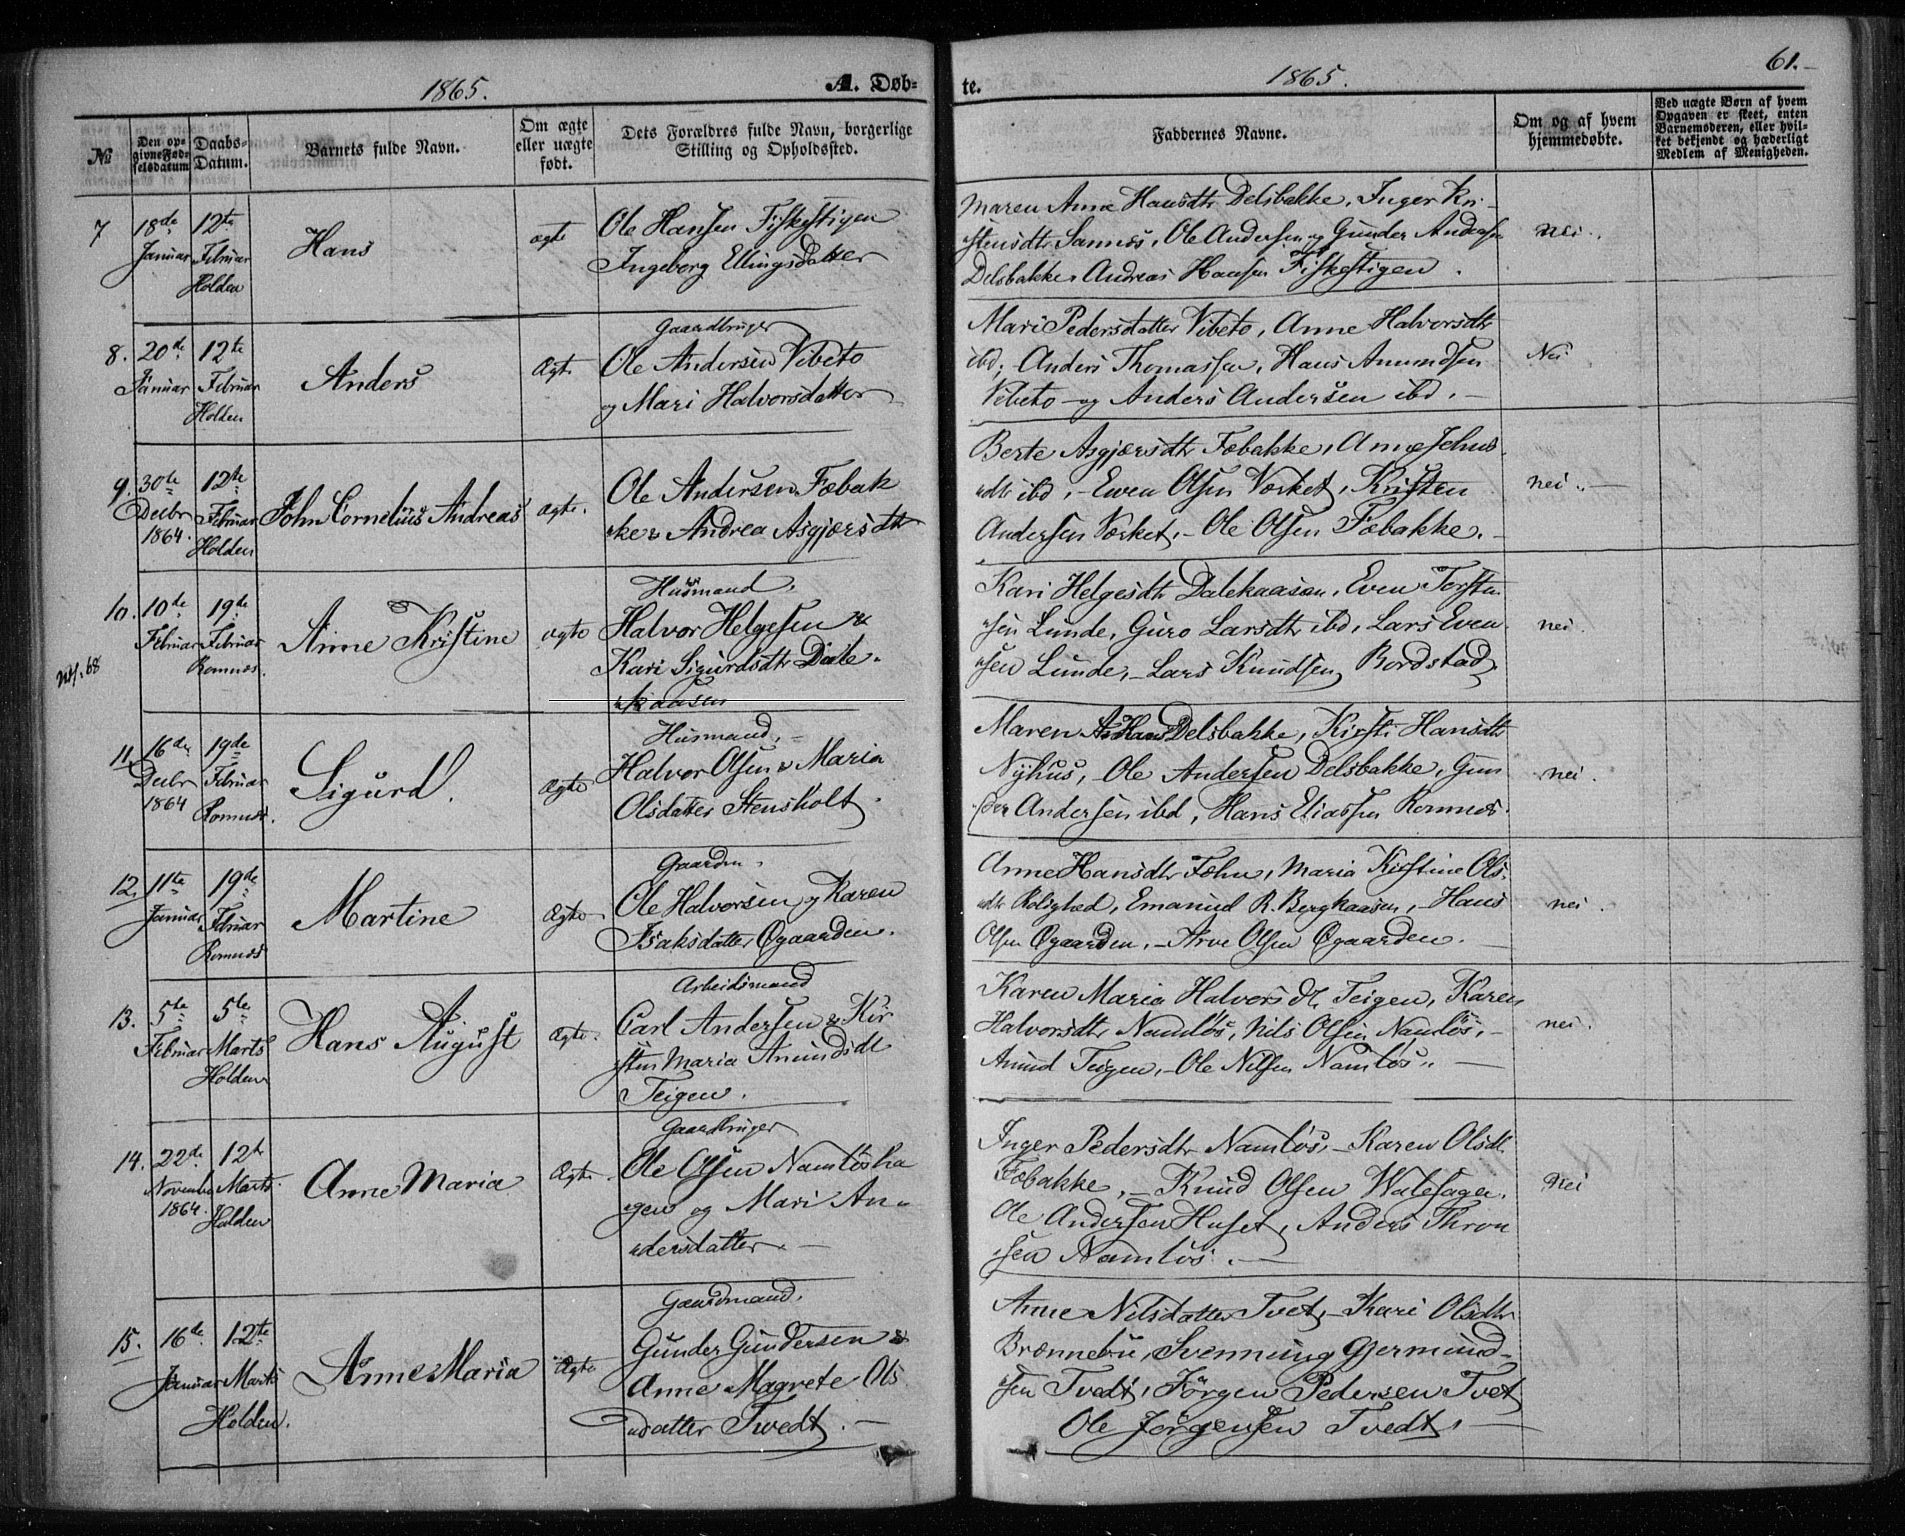 1865.
A. Døb-
te.
1865.
61.
№
Den op-
givne Fød-
selsdatum
Daabs-
Datum.
Barnets fulde Navn.
Om ægte
eller uægte
født.
Dets Forældres fulde Navn, borgerlige
Stilling og Opholdssted.
Faddernes Navne.
Om og af hvem
hjemmedøbte.
Ved uægte Børn af hvem
Opgaven er skeet, enten
Barnemoderen, eller hvil-
ket bekjendt og hæderligt
Medlem af Menigheden.
7
18de
Januar
12te
Februar
Holden
Hans
ægte
Ole Hansen Fiskestigen
Ingeborg Ellingsdatter
Maren Anne Hansdtr Delsbakke, Inger Kri-
stensdtr Sannes, Ole Andersen og Gunder Andersen
Delsbakke, Andreas Hansen Fiskestigen.
nei.
8.
20de
Januar
12te
Februar
Holden
Anders
Ægte
Gaardbruger
Ole Andersen Vibeto
og Mari Halvorsdatter
Mari Pedersdatter Vibeto, Anne Halvorsdtr
ibd, Anders Thomassen, Hans Amundsen
Vibeto og Anders Andersen ibd.
Nei
9.
30te
Decbr
1864.
12te
Februar
Holden
John Cornelius Andreas
ægte.
Ole Andersen Fæbak
ke & Andrea Asgjærsdtr
Berte Asgjærsdtr Fæbakke, Anne Johns
dtr ibd, - Even Olsen Værket, Kristen
Andersen Værket, - Ole Olsen Fæbakke.
nei.
10.
10de
Februar
19de
Februar
Romnæs.
Anne Kristine
ægte
Husmand,
Halvor Helgesen &
Kari Sigurdsdtr Dale-
kaasen
Kari Helgesdtr Dalekaasen, Even Torsten
sen Lunde, Guro Larsdtr ibd, Lars Even
sen Lunde, - Lars Knudsen Bordstad
nei.
11.
16de
Decbr
1864
19de
Februar
Romnæs.
Sigurd.
Ægte
Husmand,
Halvor Olsen & Maria
Olsdatter Stensholt.
Maren Hans Delsbakke, Kirsti Hansdtr
Nyhus, - Ole Andersen Delsbakke, Gun
der Andersen ibd, Hans Eliassen Romnæs.
nei.
12.
11te
Januar
19de
Februar
Romnæs
Martine
Ægte
Gaardm.
Ole Halvorsen og Karen
Isaksdatter Øgaarden.
Anne Hansdtr Fæhn, Maria Kirstine Ols
dtr Rolighed, Emanuel R. Berghaasen, - Hans
Olsen Øgaarden, - Arve Olsen Øgaarden.
nei.
13.
5te
Februar
5te
Marts
Holden
Hans August
Ægte.
Arbeidsmand
Carl Andersen & Kir
sten Maria Amundsdtr
Teigen.
Karen Maria Halvorsdtr Teigen, Karen
Halvorsdtr Namløs, Nils Olsen Namløs, -
Amund Teigen, - Ole Nilsen Namløs.
nei.
14.
22de
Novembr
1864.
12te
Marts.
Holden
Anne Maria
Ægte
Gaardbruger
Ole Olsen Namløsha
gen og Mari An-
dersdatter.
Inger Pedersdtr Namløs, - Karen Olsdtr
Fæbakke, - Knud Olsen Valesagen.
Ole Andersen Huset, Anders Thron
sen Namløs.
Nei
15.
16de
Januar
12te
Marts
Holden.
Anne Maria
Ægte
Gaardmand,
Gunder Gundersen &
Anne Magrete Ols
datter Tvedt.
Anne Nilsdatter Tvet, Kari Olsdtr
Brænnebu, Svennung Gjermund-
sen Tvedt, Jørgen Pedersen Tvet
Ole Jørgensen Tvedt.